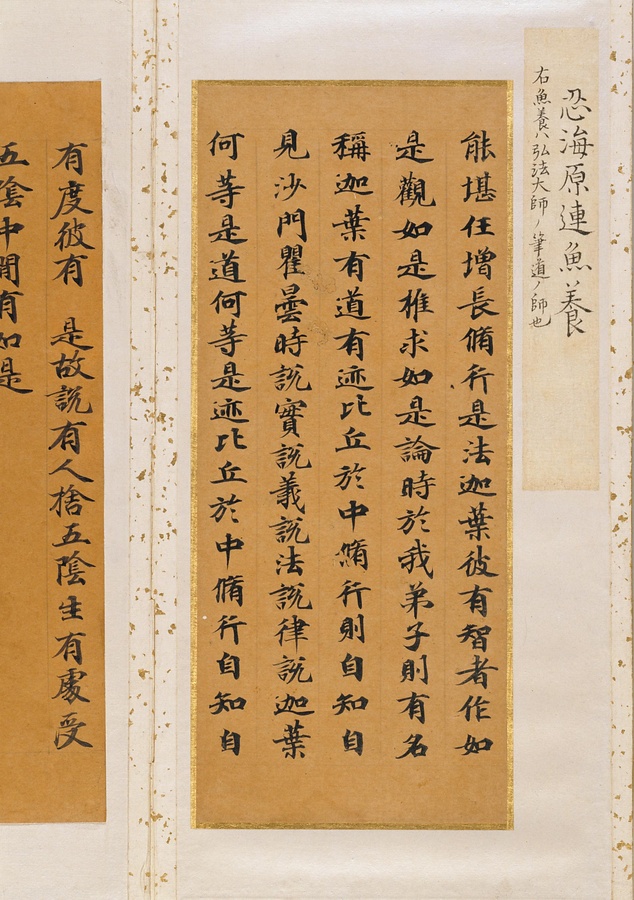 忍海原連魚養
右魚養ハ弘法大師ノ筆道ノ師也
能堪任增長脩行是法迦葉彼有智者作如
是觀如是推求如是論時於我弟子則有名
稱迦葉有道有迹比丘於中脩行則自知自
見沙門瞿曇時說實說義說法說律說迦葉
何等是道何等是迹比丘於中脩行自知自
有度彼有 是故說有人捨五陰生有處受
五陰中間有如是